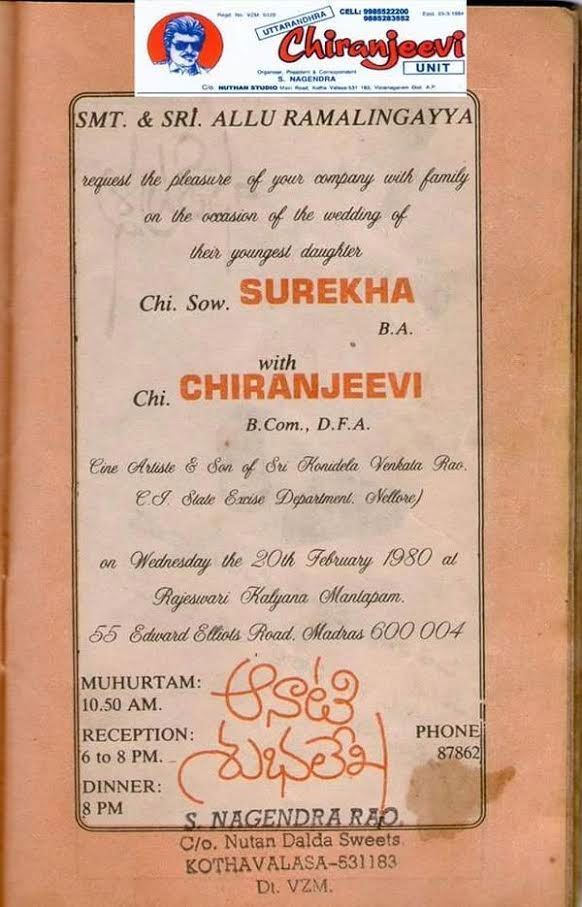 Regd. No. VZM 6/09
UTTARANDHRA
CELL: 9985522200
9885283552
Chiranjeevi
UNIT
Organiser, President & Correspondent
S. NAGENDRA
C/o. NUTHAN STUDIO Main Road, Kotha Valasa-531 183, Vizianagaram Dist. A.P.
SMT. & SRI. ALLU RAMALINGAYYA
request the pleasure of your company with family
on the occasion of the wedding of
their youngest daughter
Chi. Sow. SUREKHA
B.A.
with
Chi. CHIRANJEEVI
B.Com., D.F.A.
Cine Artiste & Son of Sri Konidela Venkata Rao,
C.I. State Excise Department, Nellore)
on Wednesday the 20th February 1980 at
Rajeswari Kalyana Mantapam,
55 Edward Elliots Road, Madras 600 004
MUHURTAM:
10.50 AM.
RECEPTION:
6 to 8 PM.
DINNER:
8 PM
ఆనాటి
శుభలేఖ
PHONE
87862
S. NAGENDRA RAO,
C/o. Nutan Dalda Sweets
KOTHAVALASA-531183
Dt. VZM.